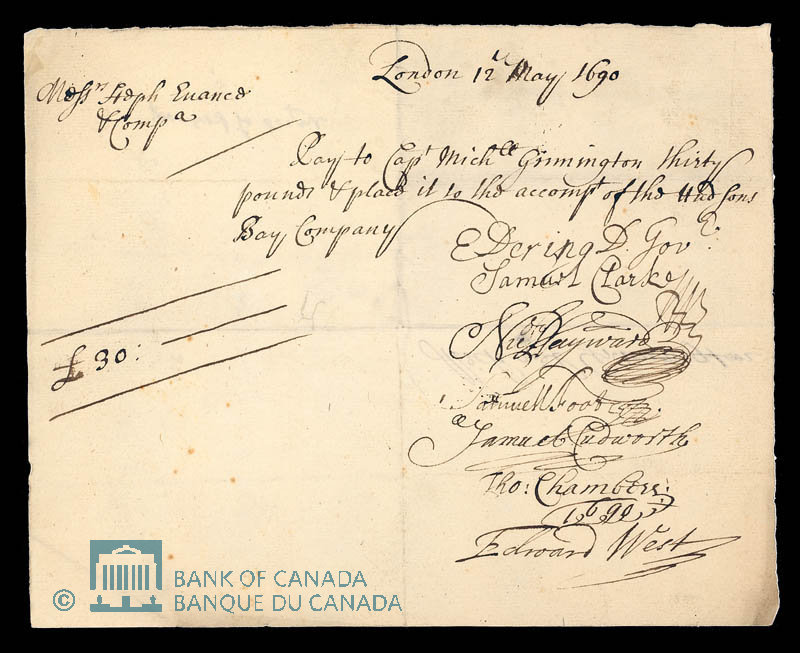 London 12th May 1690
Messrs Steph Evance
& Compa
Pay to Capt Michll Grinnington thirty
pounds & place it to the accompt of the Hudsons
Bay Company
£ 30:
E Dering D. Govr
Samuel Clarke
Nic Hayward
Samuell Foote
Samuel Cudworth
Tho: Chambers:
1690
Edward West
© BANK OF CANADA
BANQUE DU CANADA